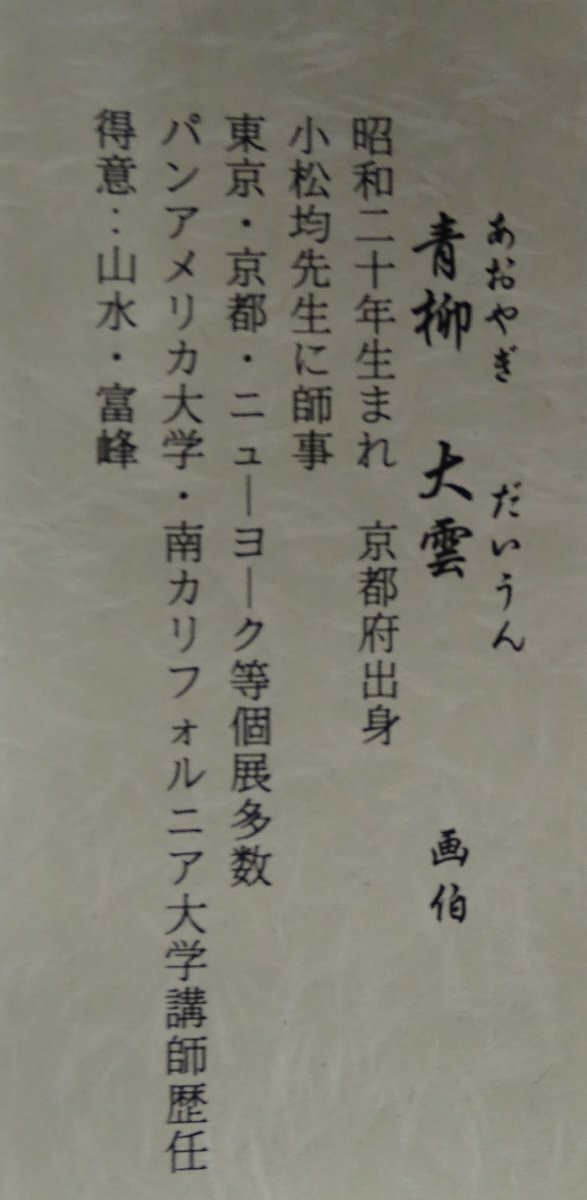 あおやぎ だいうん
青柳 大雲 画伯
昭和二十年生まれ 京都府出身
小松均先生に師事
東京・京都・ニューヨーク等個展多数
パンアメリカ大学・南カリフォルニア大学講師歴任
得意：山水・富峰